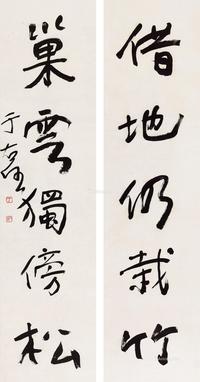 借地仍栽竹
巢雲獨傍松
于右任